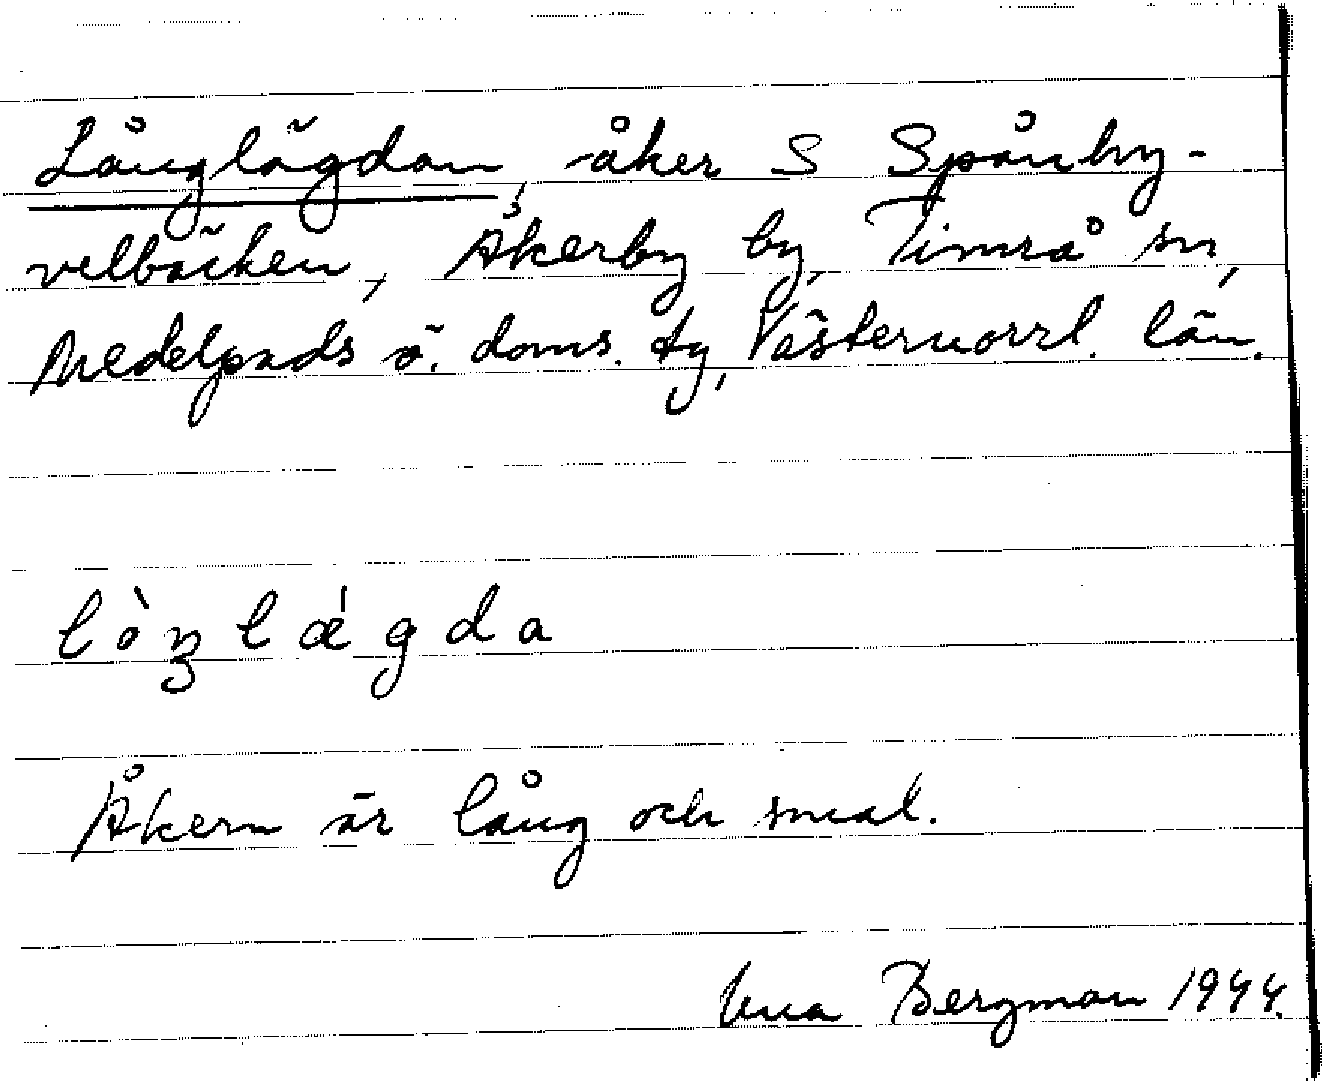 Långlägdan, åker S Spånby-
velbäcken, Åkerby by, Timrå sn,
Medelpads ö. doms. tg, Västernorrl. län.
lòŋlǽgda
Åkern är lång och smal.
Una Bergman 1944.